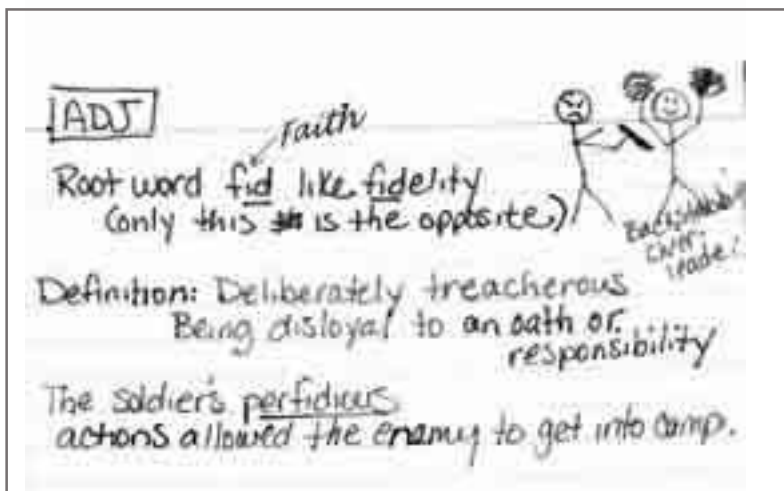 ADJ
Faith
Root word fid like fidelity
(only this is the opposite)
Backstabbing
cheer-
leader
Definition: Deliberately treacherous
Being disloyal to an oath or
responsibility
The soldier's perfidious
actions allowed the enemy to get into camp.